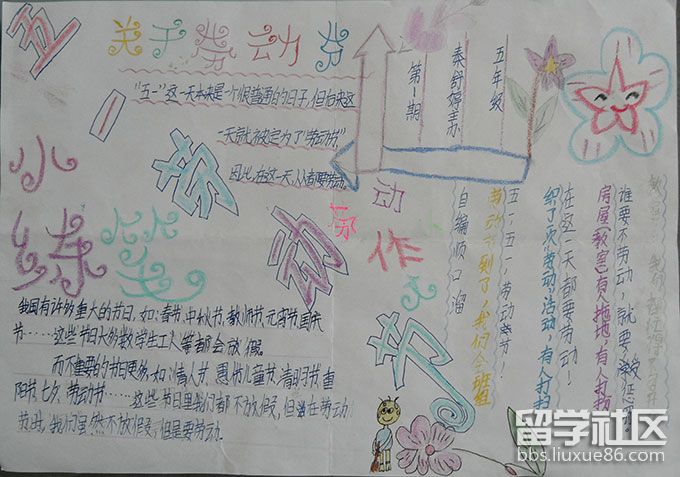 五
一
劳
动
节
关于劳动节
"五一"这一天本来是一个很普通的日子,但后来这
一天就被定为了"劳动节"
因此,在这一天,人人都要劳动。
五年级
秦舒婷主办
第1期
小
练笔
我国有许多重大的节日,如:春节,中秋节,教师节,元宵节,国庆
节……这些节日大多数学生工人等都会放假。
而不重要的节日更多,如:情人节、愚人节儿童节,清明节重
阳节,七夕,劳动节……这些节日里我们都不放假,但当在劳动
节时,我们虽然不放假,但是要劳动。
作
自编顺口溜
五一五一,劳动节!
劳动节到了,我们全班组
织了次劳动活动,有人打扫
在这一天都要劳动!
房屋(教室)有人拖地,有人打扫
谁要不劳动,就要
留学社区
bbs.liuxue86.com